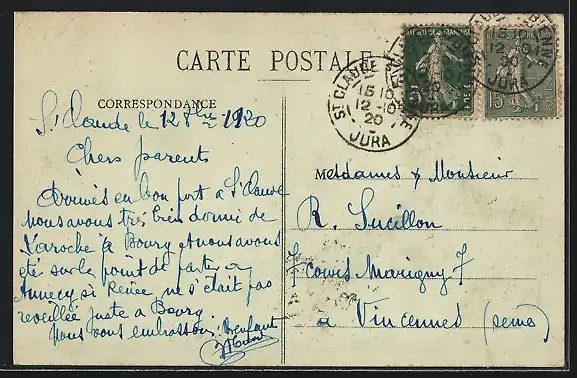 CARTE POSTALE
CORRESPONDANCE
St Claude le 12 8bre 1920
Chers parents
Arrivés en bon port à St Claude
nous avons très bien dormi de
Laroche à Bourg et nous avons
été sur le point de partir
Annecy si Renée ne s'était pas
réveillée juste à Bourg.
Nous vous embrassons.
Mesdames & Monsieur
R. Lucillon
7 cours Marigny 7
à Vincennes (Seine)
ST CLAUDE
15 10
12 - 10
20
JURA
REPUBLIQUE FRANÇAISE
15